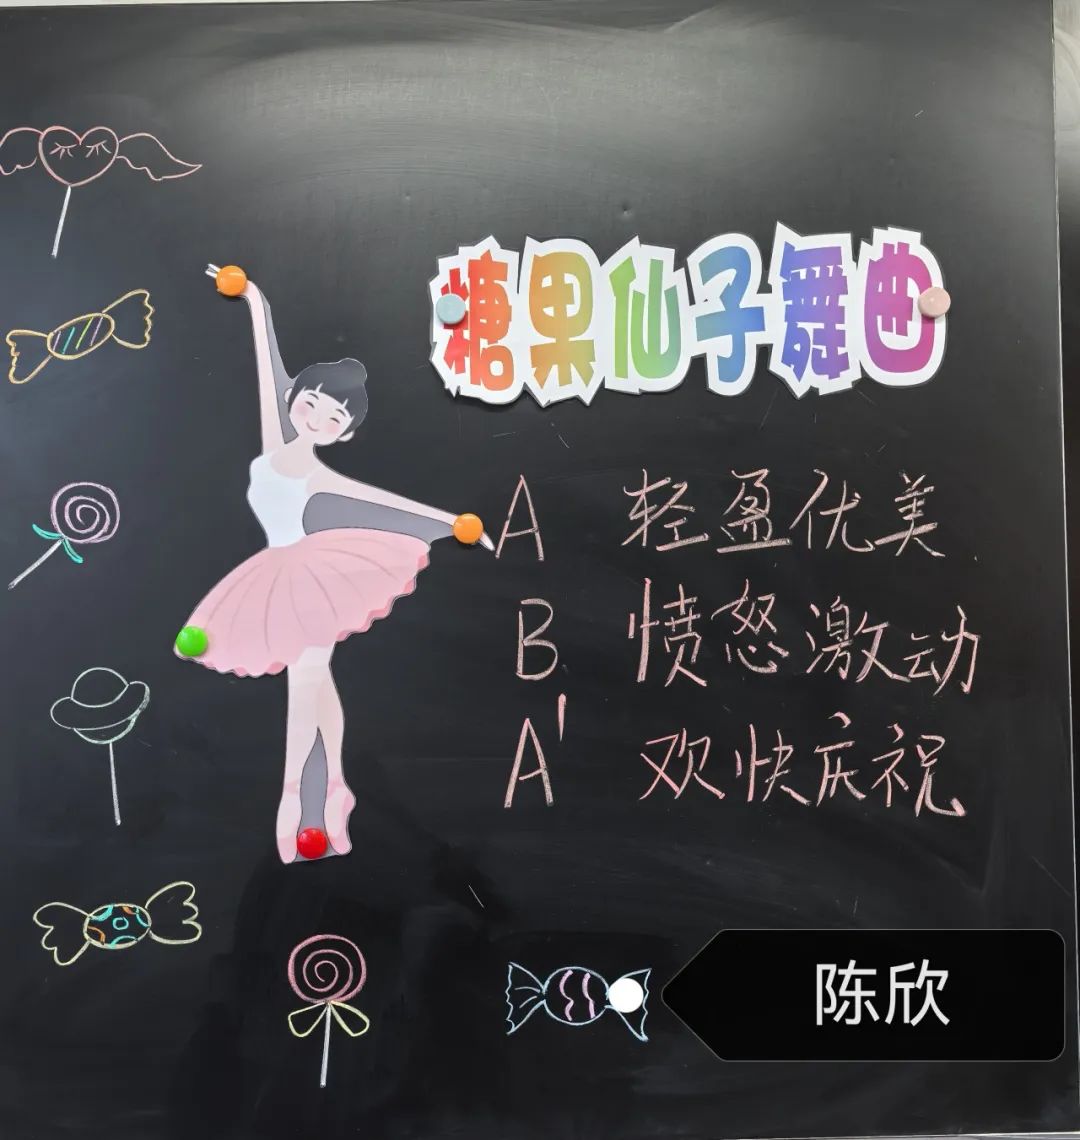 糖果仙子舞曲
A 轻盈优美
B 愤怒激动
A' 欢快庆祝
陈欣